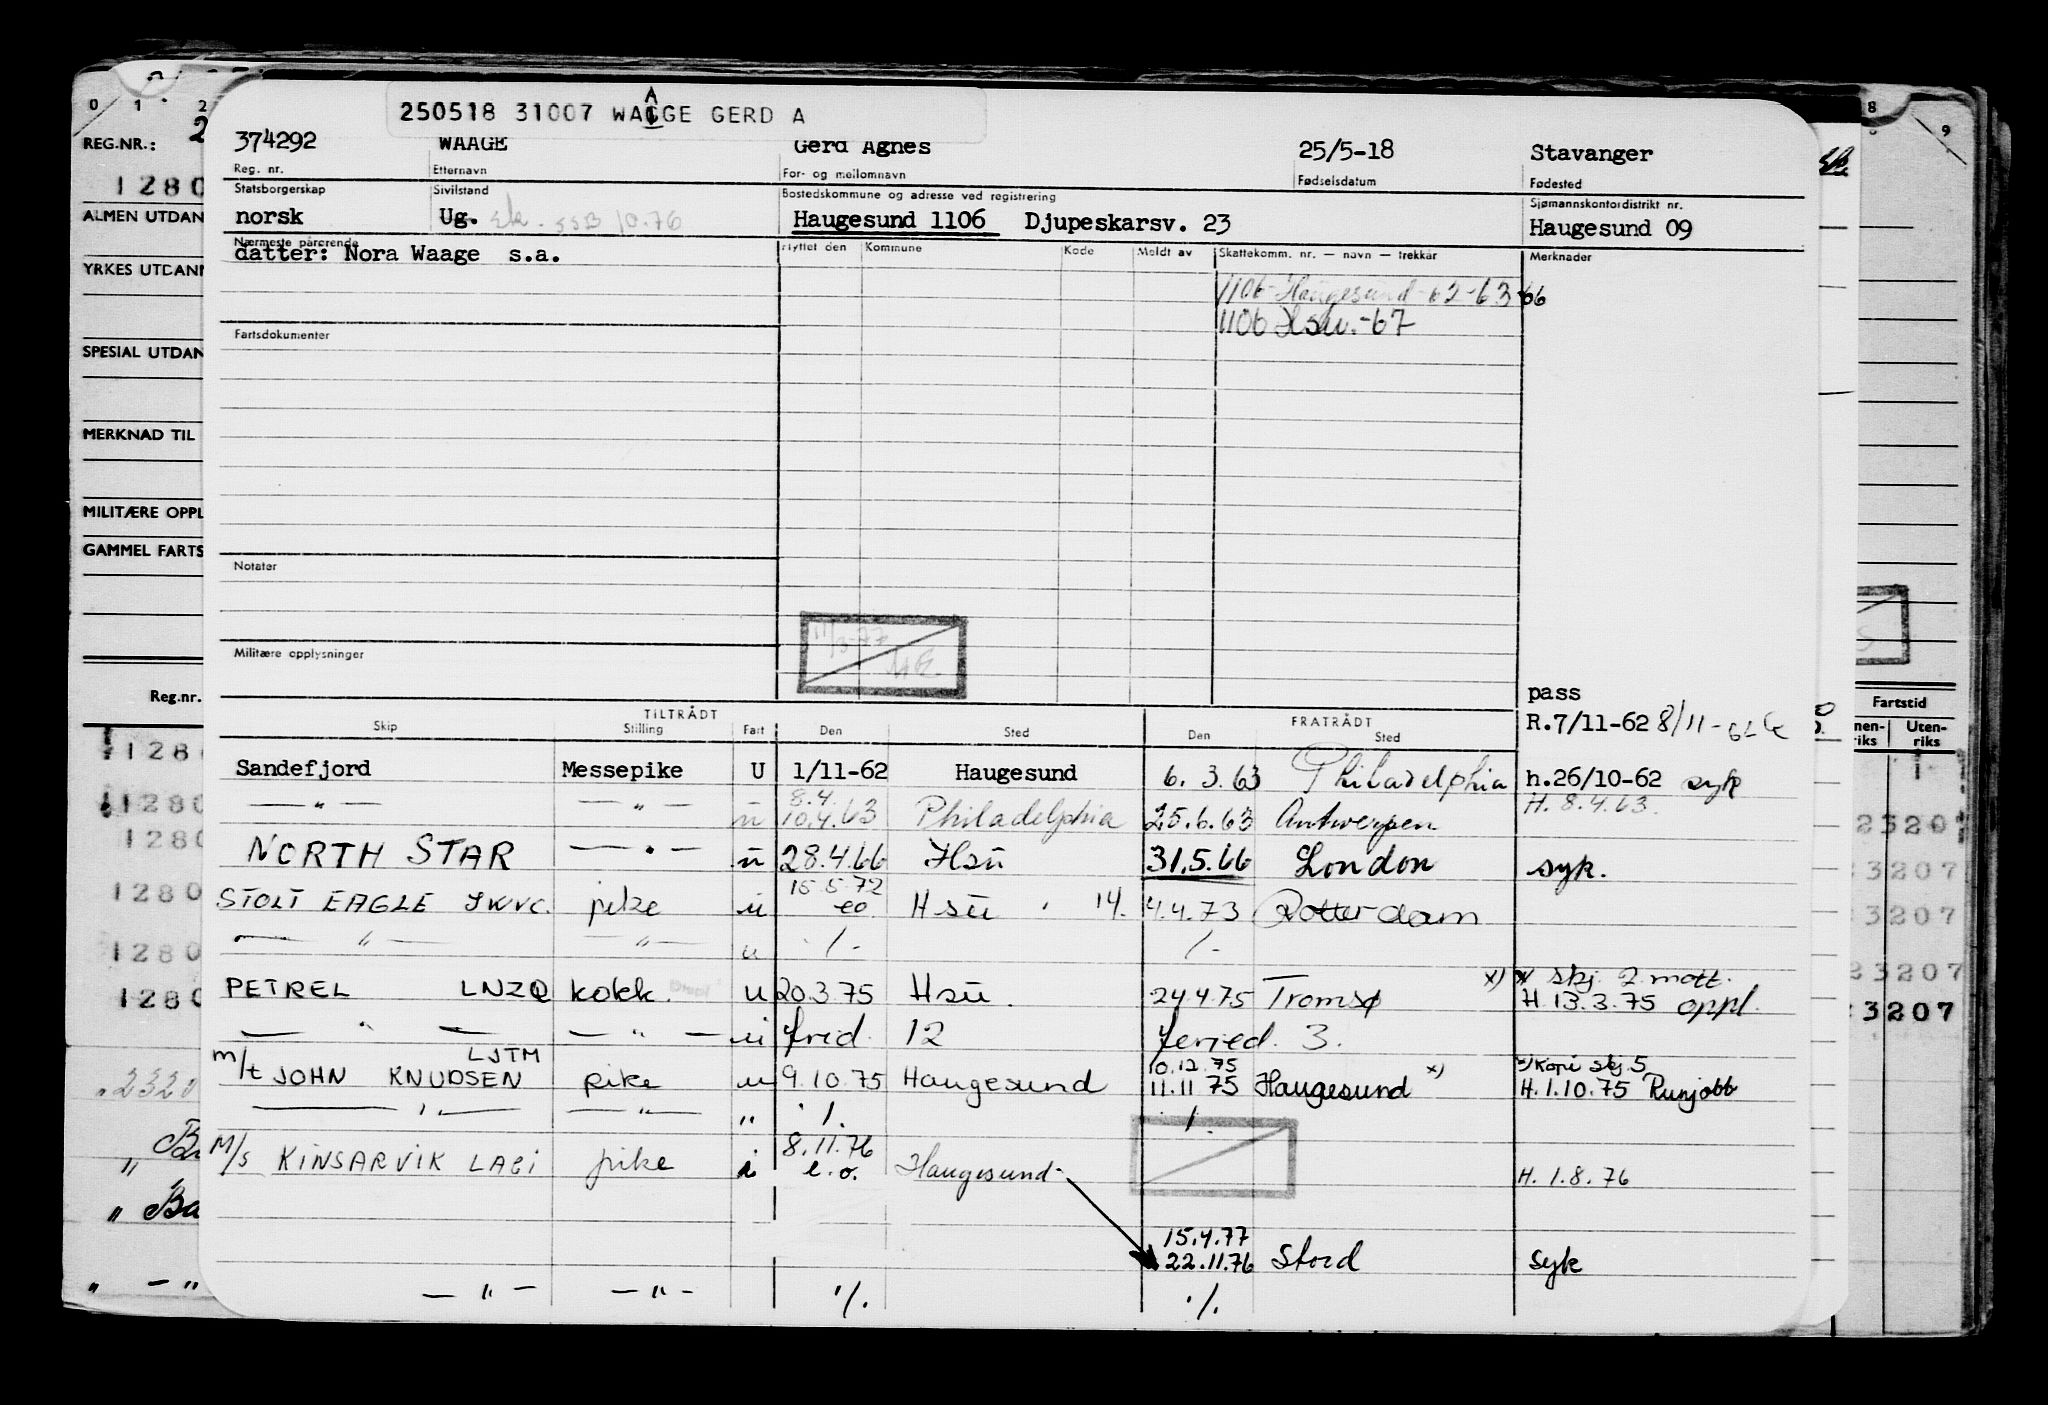 0 1 2 8 9
A
250518 31007 WAGGE GERD A
REG.NR.: 2
374292 WAAGE Gerd Agnes 25/5-18 Stavanger
Reg. nr. Etternavn For- og mellomnavn Fødselsdatum Fødested
1280
Statsborgerskap Sivilstand Bostedskommune og adresse ved registrering Sjømannskontordistrikt nr.
ALMEN UTDAN
norsk Ug. ek. SSB 10.76 Haugesund 1106 Djupeskarsv. 23 Haugesund 09
Nærmeste pårørende Flyttet den Kommune Kode Meldt av Skattekomm. nr. — navn — trekkår Merknader
datter: Nora Waage s.a.
YRKES UTDANN
1106 Haugesund-62-63-66
1106 Hsu.-67
Fartsdokumenter
SPESIAL UTDAN
MERKNAD TIL
MILITÆRE OPPL
GAMMEL FARTS
Notater
11/3-77
Militære opplysninger
pass
Reg.nr. Fartstid
TILTRÅDT FRATRÅDT R.7/11-62 8/11-62
Skip Stilling Fart Den Sted Den Sted
nen-riks Uten-riks
Sandefjord Messepike U 1/11-62 Haugesund 6.3.63 Philadelphia h.26/10-62 syk
8.4.
— " — — " — u 10.4.63 Philadelphia 25.6.63 Antwerpen H. 8.4.63.
NORTH STAR — " — u 28.4.66 Hsu 31.5.66 London syk.
15.5.72
STOLT EAGLE JWVC. pike u eo. Hsu 14. 4.4.73 Rotterdam
— " — — " — u ·/· ·/·
x) x) skj. 2 mott.
PETREL LNZQ kokk. u 20.3.75 Hsu. 24.4.75 Tromsø H. 13.3.75 oppl.
— " — — " — u fred. 12 feried. 3.
LJTM 10.12.75 x) Kopi skj. 5
m/t JOHN KNUDSEN pike u 9.10.75 Haugesund 11.11.75 Haugesund x) H.1.10.75 Runjobb
— " — — " — " ·/· ·/·
8.11.76
M/S KINSARVIK LAEI pike i e.o. Haugesund H. 1.8.76
15.4.77
22.11.76 Stord syk
— " — — " — ·/· ·/·